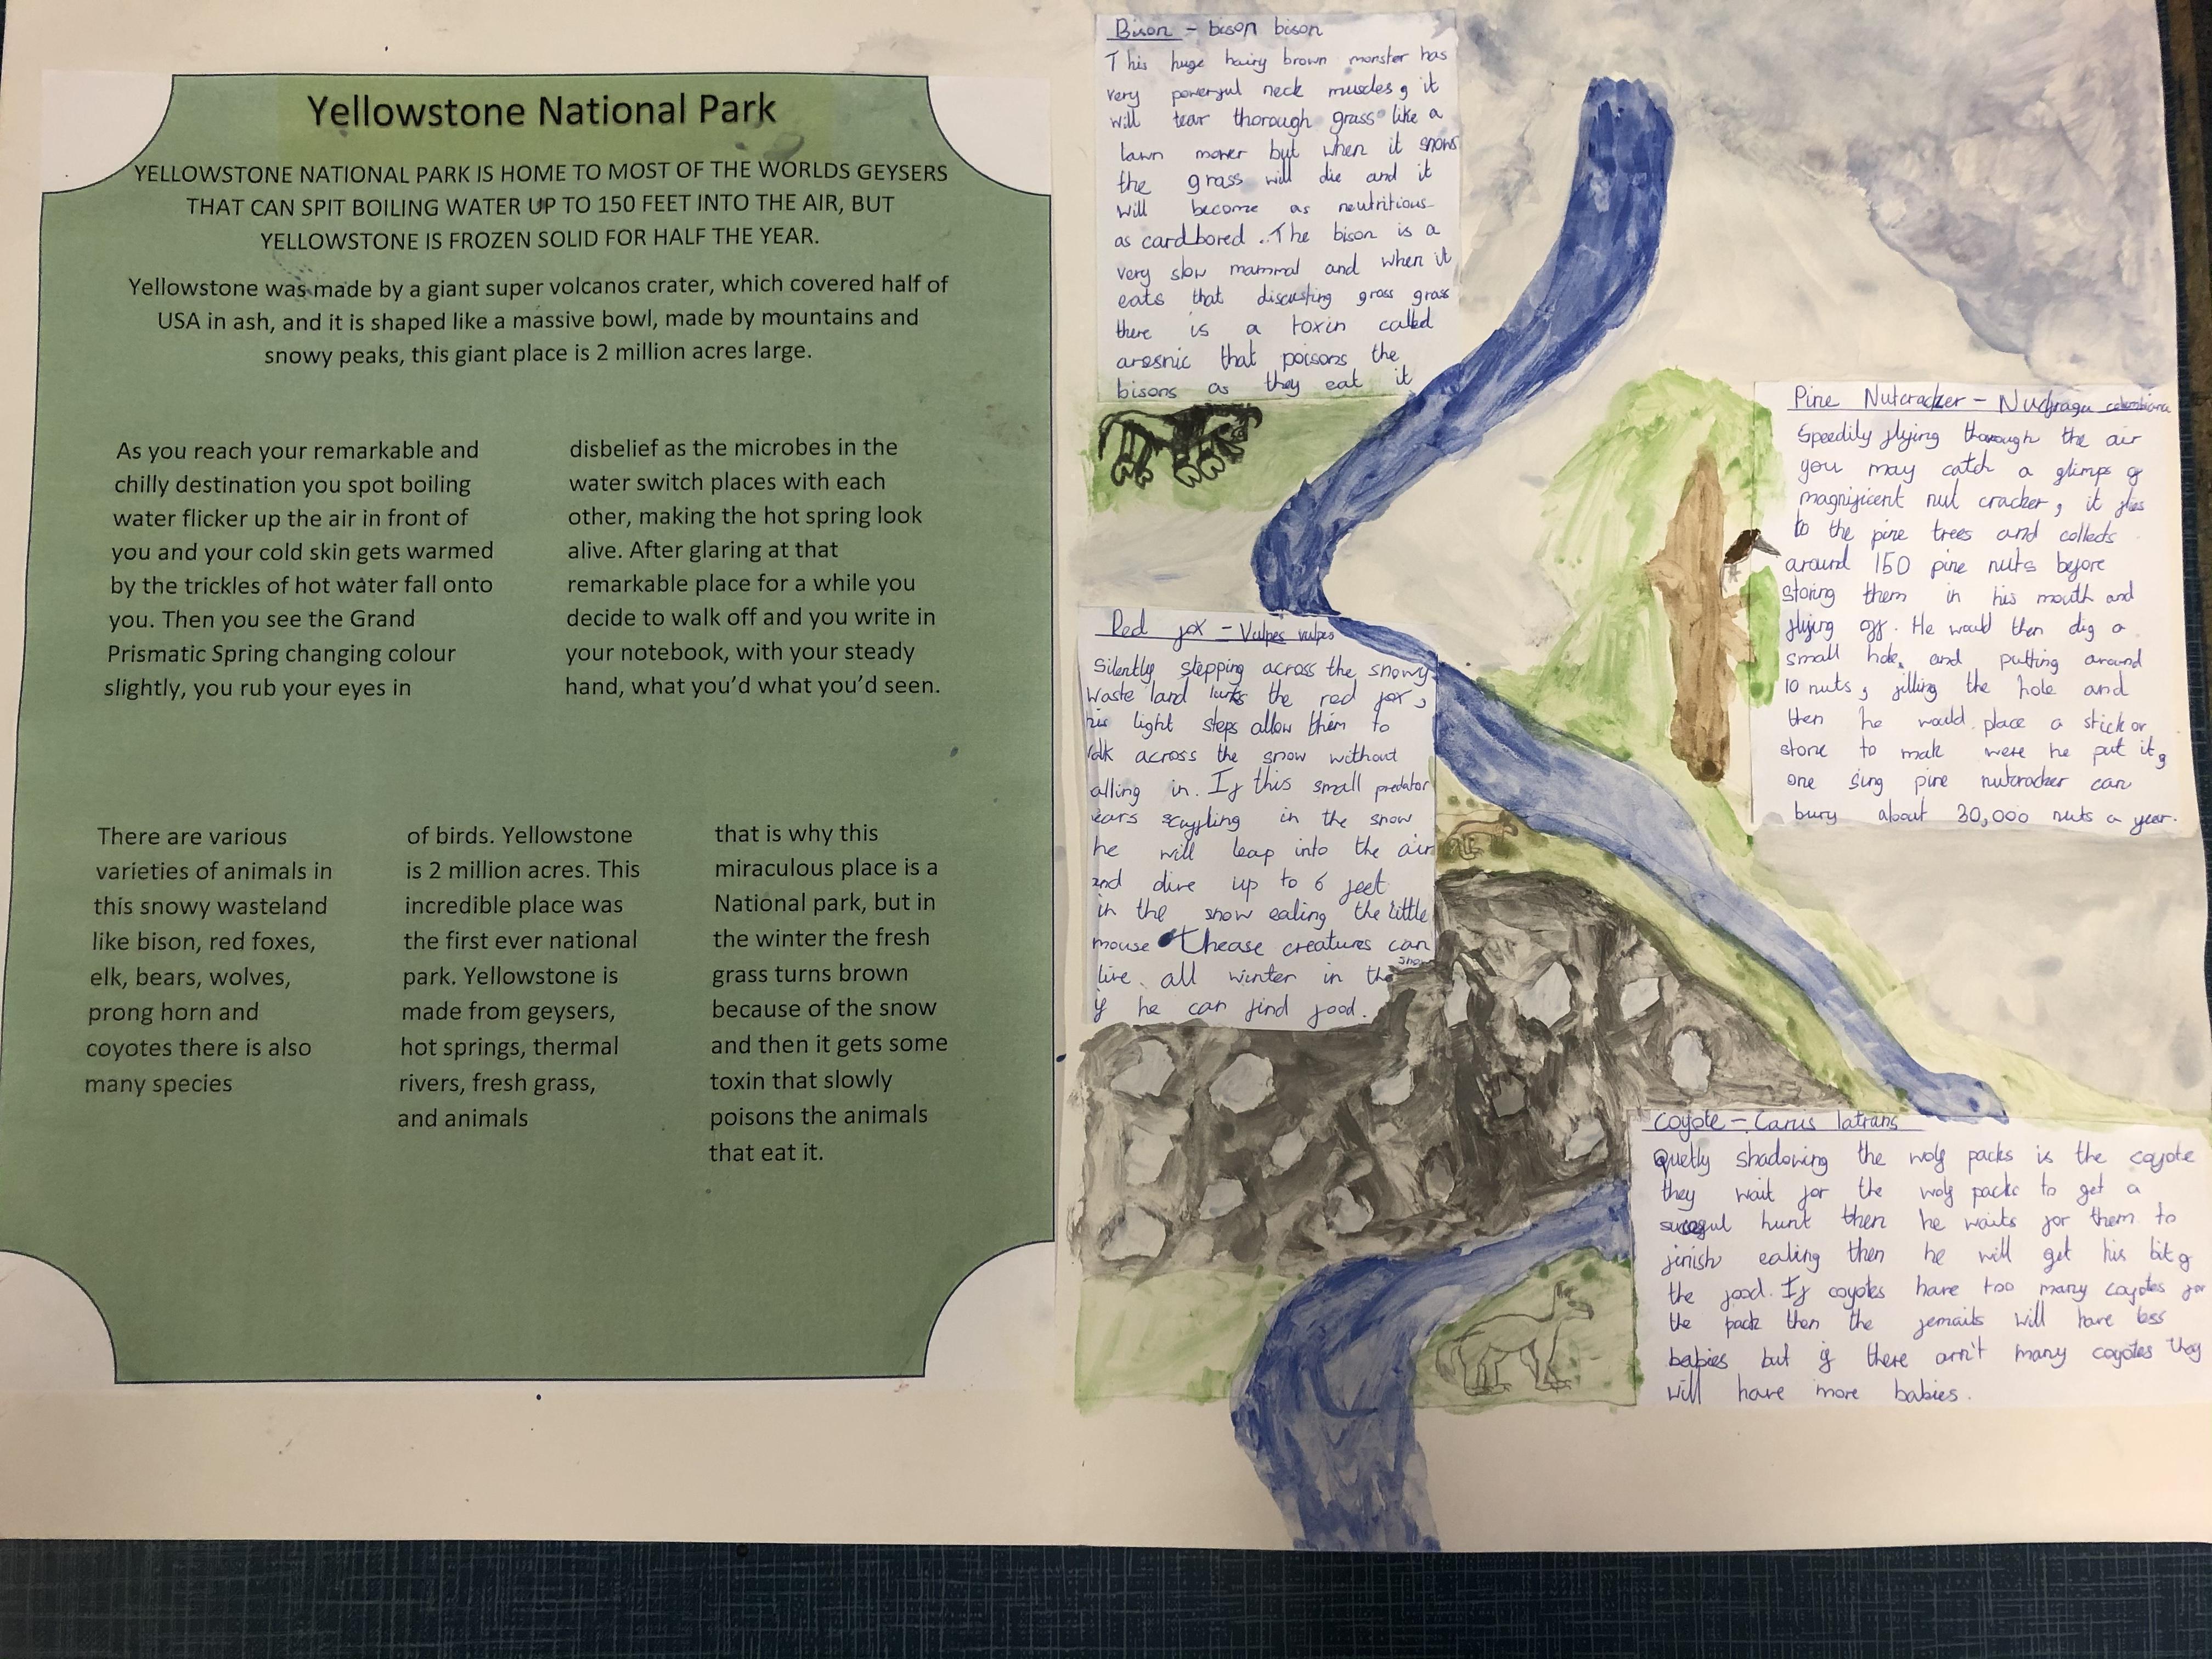 Yellowstone National Park
YELLOWSTONE NATIONAL PARK IS HOME TO MOST OF THE WORLDS GEYSERS
THAT CAN SPIT BOILING WATER UP TO 150 FEET INTO THE AIR, BUT
YELLOWSTONE IS FROZEN SOLID FOR HALF THE YEAR.
Yellowstone was made by a giant super volcanos crater, which covered half of
USA in ash, and it is shaped like a massive bowl, made by mountains and
snowy peaks, this giant place is 2 million acres large.
As you reach your remarkable and
chilly destination you spot boiling
water flicker up the air in front of
you and your cold skin gets warmed
by the trickles of hot water fall onto
you. Then you see the Grand
Prismatic Spring changing colour
slightly, you rub your eyes in
disbelief as the microbes in the
water switch places with each
other, making the hot spring look
alive. After glaring at that
remarkable place for a while you
decide to walk off and you write in
your notebook, with your steady
hand, what you'd what you'd seen.
There are various
varieties of animals in
this snowy wasteland
like bison, red foxes,
elk, bears, wolves,
prong horn and
coyotes there is also
many species
of birds. Yellowstone
is 2 million acres. This
incredible place was
the first ever national
park. Yellowstone is
made from geysers,
hot springs, thermal
rivers, fresh grass,
and animals
that is why this
miraculous place is a
National park, but in
the winter the fresh
grass turns brown
because of the snow
and then it gets some
toxin that slowly
poisons the animals
that eat it.
Bison - bison bison
This huge hairy brown monster has
very powerful neck muscles, it
will tear thorough grass like a
lawn mower but when it snows
the grass will die and it
will become as neutritious
as cardbored. The bison is a
very slow mammal and when it
eats that discusting gross grass
there is a toxin called
aresnic that poisons the
bisons as they eat it
Red fox - Vulpes vulpes
Silently stepping across the snowy
waste land lurks the red fox,
his light steps allow them to
alk across the snow without
alling in. If this small predator
ears scuffling in the snow
he will leap into the air
and dive up to 6 feet
in the snow eating the little
mouse Thease creatures can
live all winter in the snow
if he can find food.
Pine Nutcracker - colombiana
Speedily flying thorough the air
you may catch a glimps of
magnificent nut cracker, it flies
to the pine trees and collects
around 150 pine nuts before
storing them in his mouth and
flying off. He would then dig a
small hole, and putting around
10 nuts, filling the hole and
then he would place a stick or
stone to mak were he put it,
one sing pine nutcracker can
bury about 30,000 nuts a year.
Coyote - Canus latrans
Quetly shadowing the wolf packs is the coyote
they wait for the wolf packs to get a
hunt then he waits for them to
finish eating then he will get his bit of
the food. If coyotes have too many coyotes for
the pack then the femails will have less
babies but if there arn't many coyotes they
will have more babies.